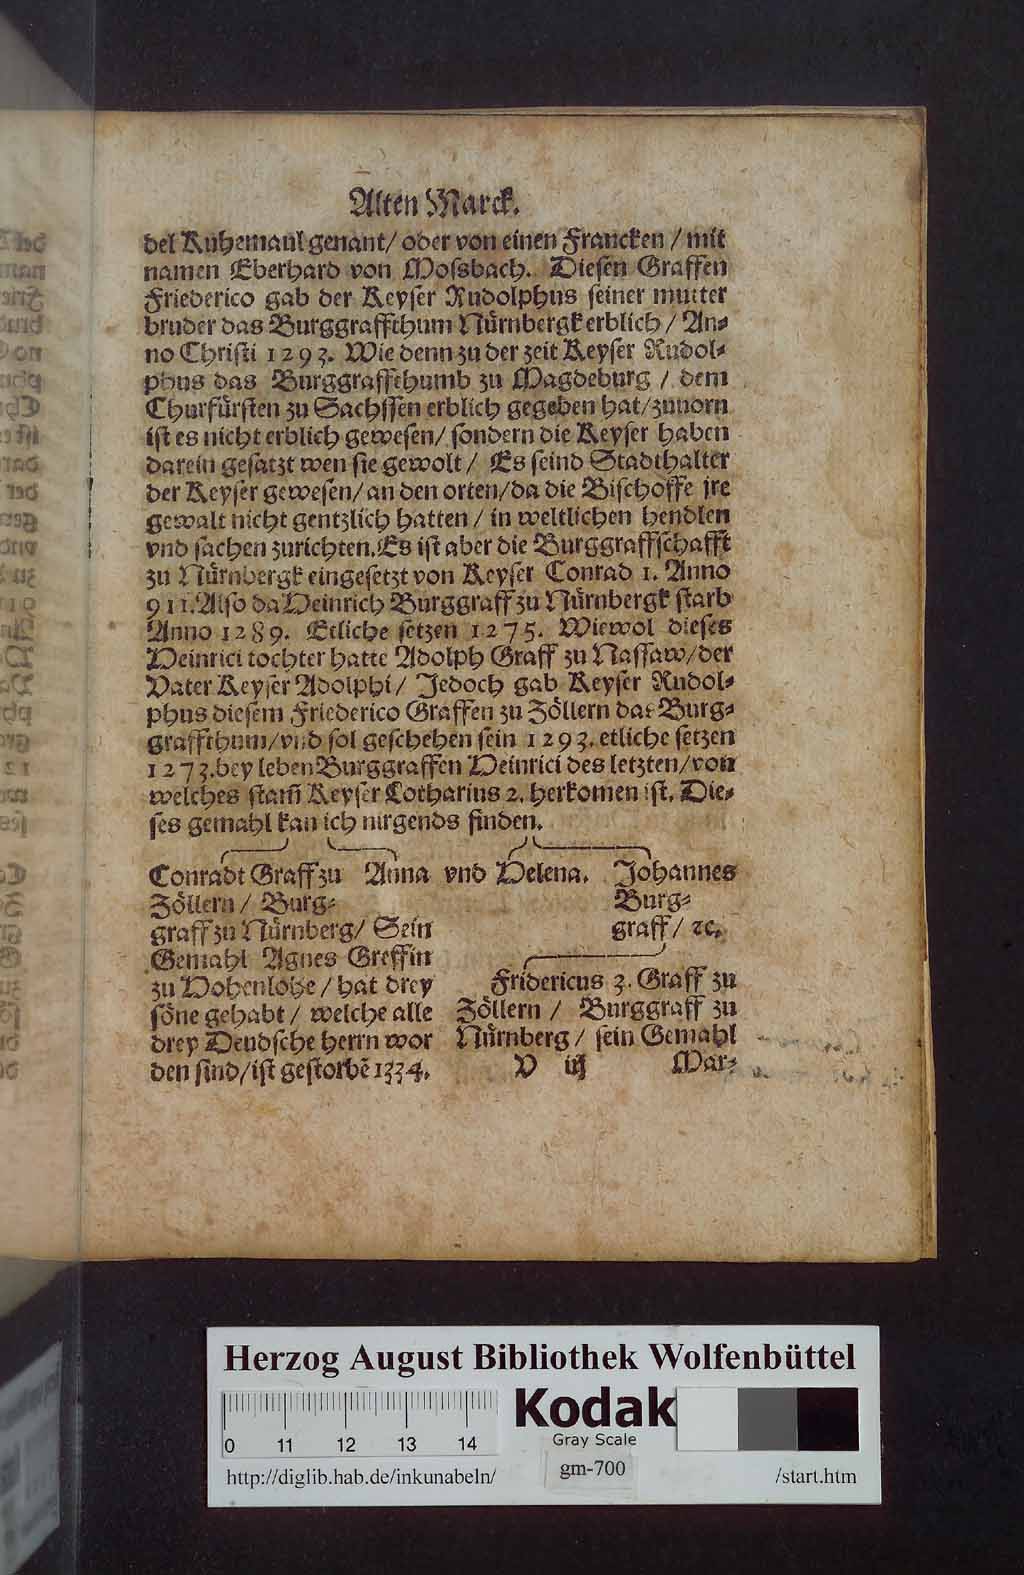 Alten Marck.
del Kuhemaul genant/ oder von einen Francken / mit
namen Eberhard von Mossbach. Diesen Graffen
Friederico gab der Keyser Rudolphus seiner mutter
bruder das Burggraffthum Nürnbergk erblich / An⸗
no Christi 1293. Wie denn zu der zeit Keyser Rudol⸗
phus das Burggraffthumb zu Magdeburg / dem
Churfürsten zu Sachssen erblich gegeben hat/zuuorn
ist es nicht erblich gewesen/ sondern die Keyser haben
darein gesatzt wen sie gewolt / Es seind Stadthalter
der Keyser gewesen/ an den orten/da die Bischoffe jre
gewalt nicht gentzlich hatten / in weltlichen hendlen
vnd sachen zurichten. Es ist aber die Burggraffschafft
zu Nürnbergk eingesetzt von Keyser Conrad 1. Anno
911. Also da Heinrich Burggraff zu Nürnbergk starb
Anno 1289. Etliche setzen 1275. Wiewol dieses
Heinrici tochter hatte Adolph Graff zu Nassaw/der
Vater Keyser Adolphi/ Jedoch gab Keyser Rudol⸗
phus diesem Friederico Graffen zu Zöllern das Burg⸗
graffthum/vnd sol geschehen sein 1293. etliche setzen
1273. bey leben Burggraffen Heinrici des letzten/von
welches stam̃ Keyser Lotharius 2. herkomen ist. Die⸗
ses gemahl kan ich nirgends finden.
Conradt Graff zu
Zöllern / Burg⸗
graff zu Nürnberg/ Sein
Gemahl Agnes Greffin
zu Hohenlohe / hat drey
söne gehabt / welche alle
drey Deudsche herrn wor
den sind/ist gestorbẽ 1334.
Anna vnd Helena.
Johannes
Burg⸗
graff/ ꝛc.
Fridericus 3. Graff zu
Zöllern / Burggraff zu
Nürnberg / sein Gemahl
V iij Mar⸗
Herzog August Bibliothek Wolfenbüttel
0 11 12 13 14
Kodak
Gray Scale
http://diglib.hab.de/inkunabeln/ gm-700 /start.htm